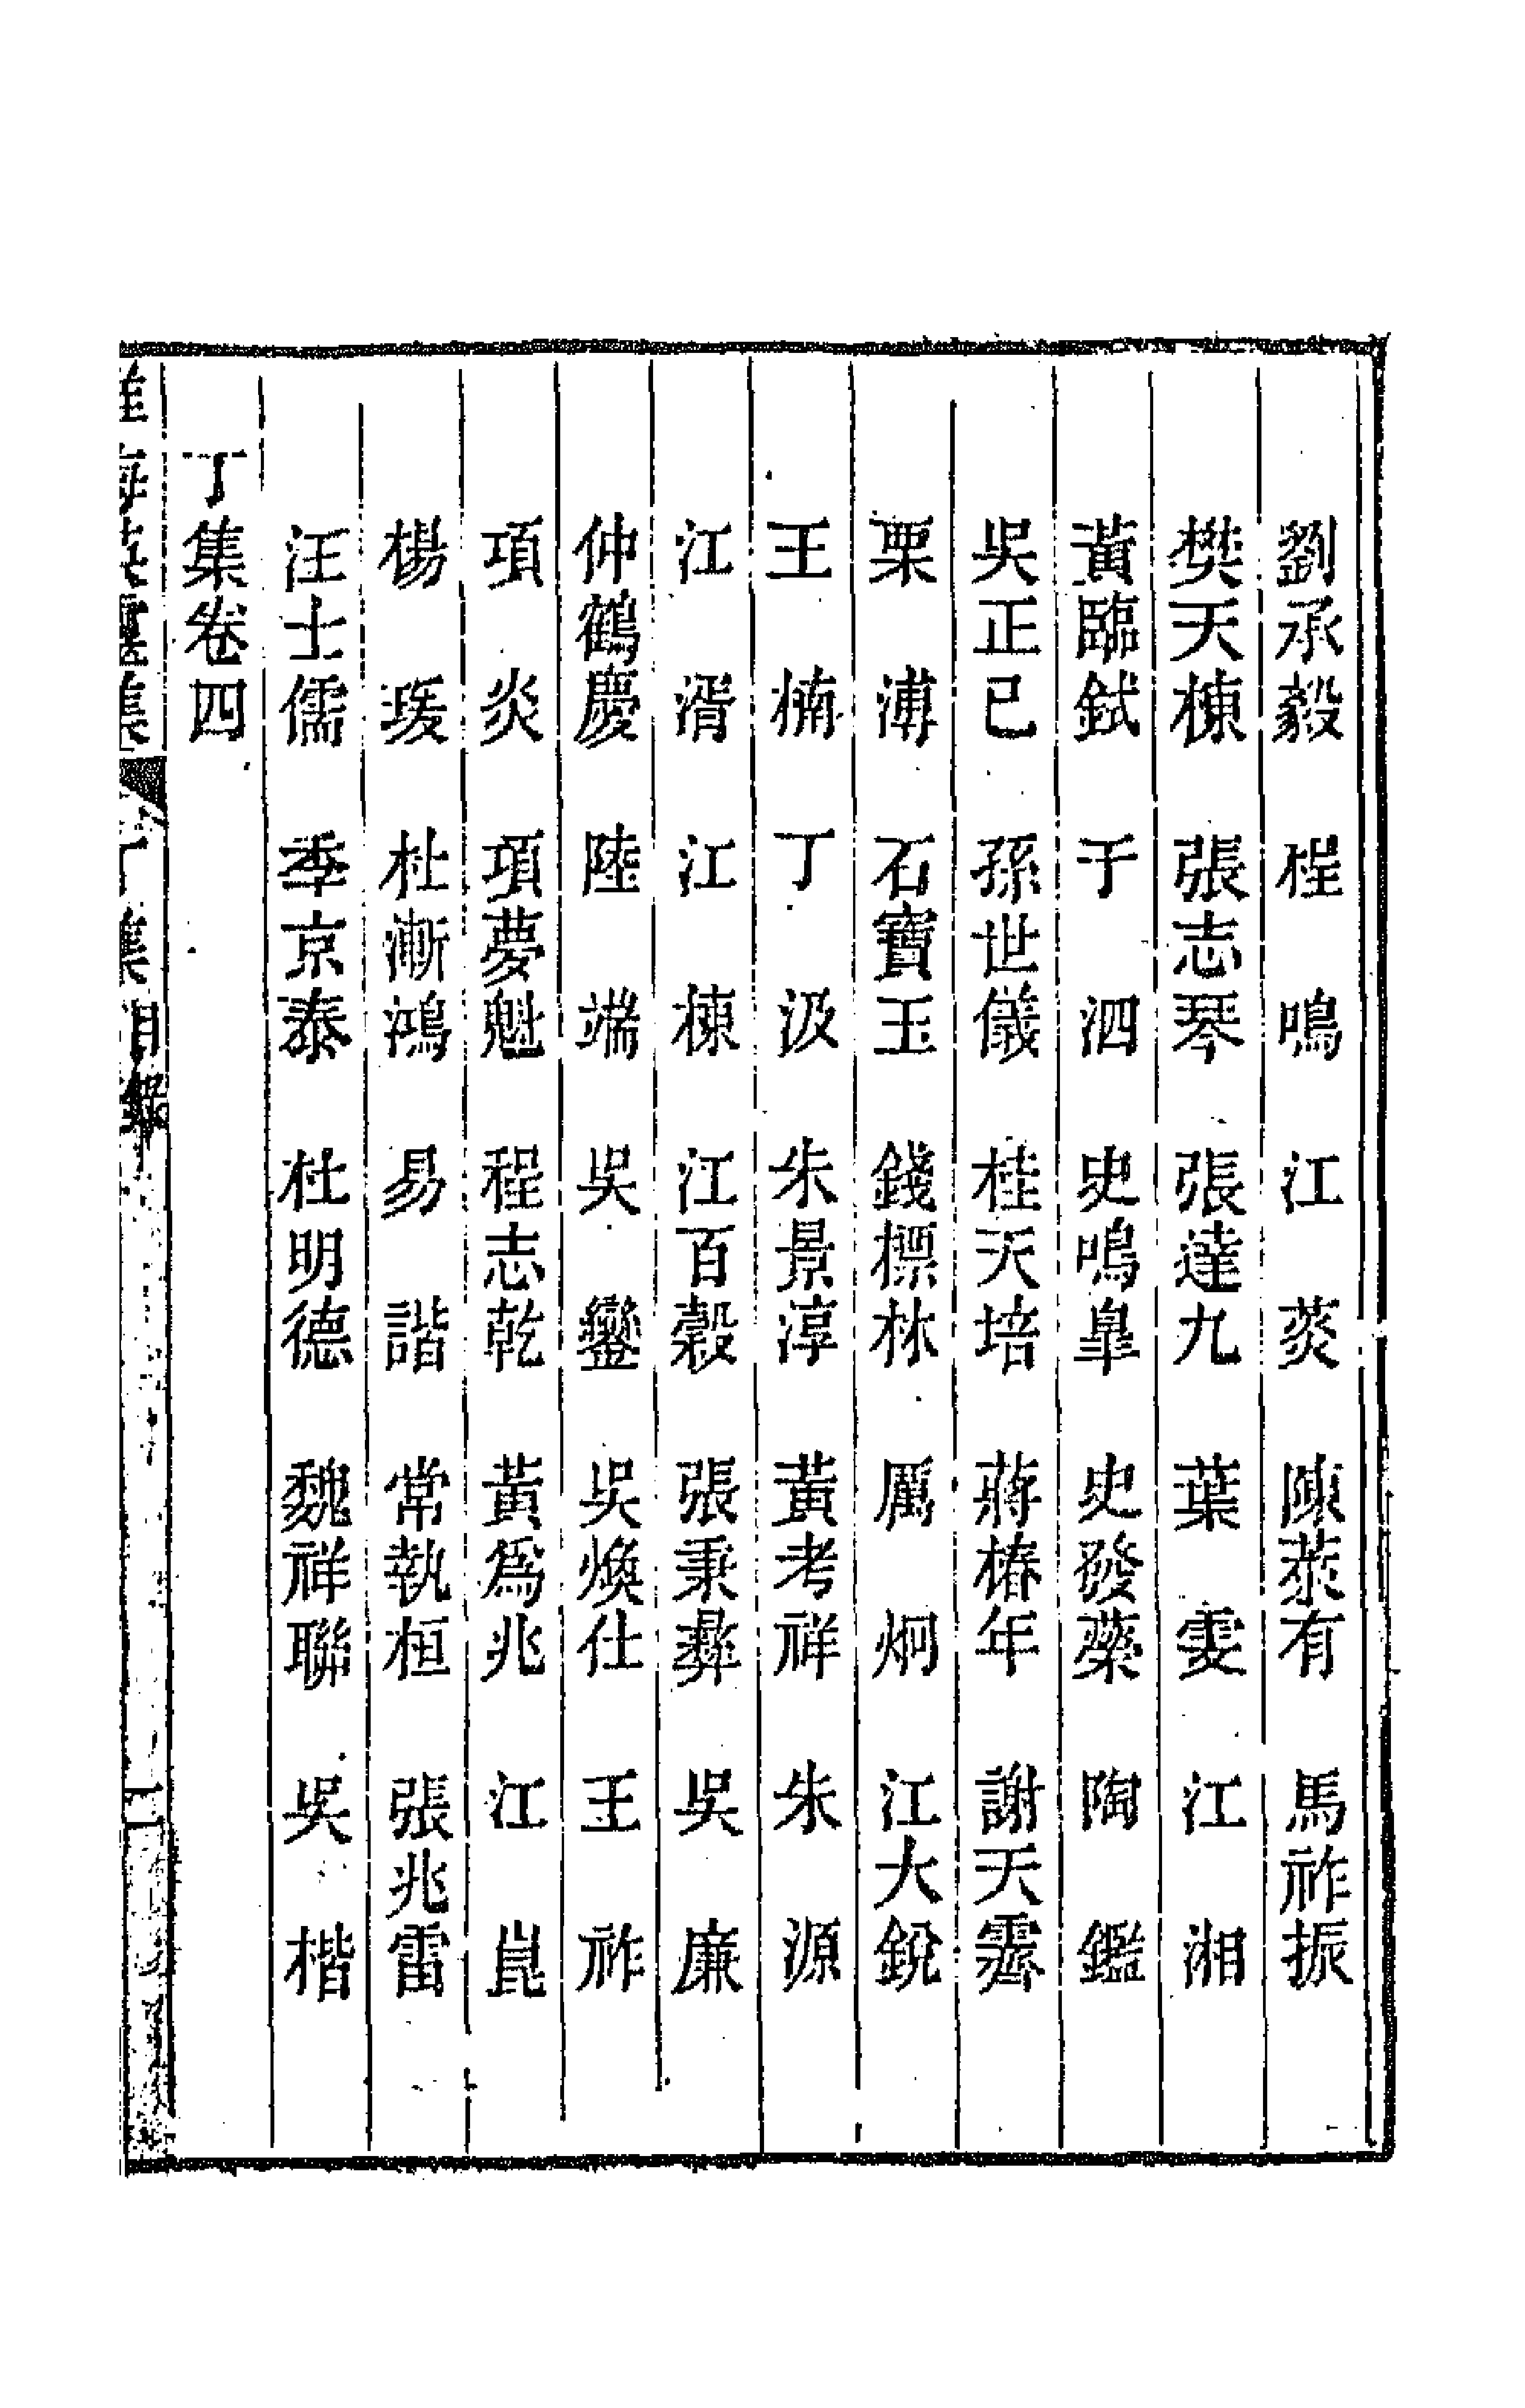 劉承毅 程鳴 江菼 陳菉有 馬祚振
樊天棟 張志琴 張達九 葉雯 江湘
黃臨鉽 于泗 史鳴臯 史發藥 陶鑑
吳正己 孫世儀 桂天培 蔣椿年 謝天霽
栗溥 石寶玉 錢標林 厲炯 江大銳
王楠 丁汲 朱景淳 黃考祥 朱源
江湑 江棟 江百穀 張秉彝 吳廉
仲鶴慶 陸端 吳鑾 吳煥仕 王祚
項炎 項夢魁 程志乾 黃爲兆 江崑
楊瑗 杜漸鴻 易諧 常執桓 張兆雷
汪士儒 季京泰 杜明德 魏祥聯 吳楷
丁集卷四
淮海英靈集 丁集目錄 二